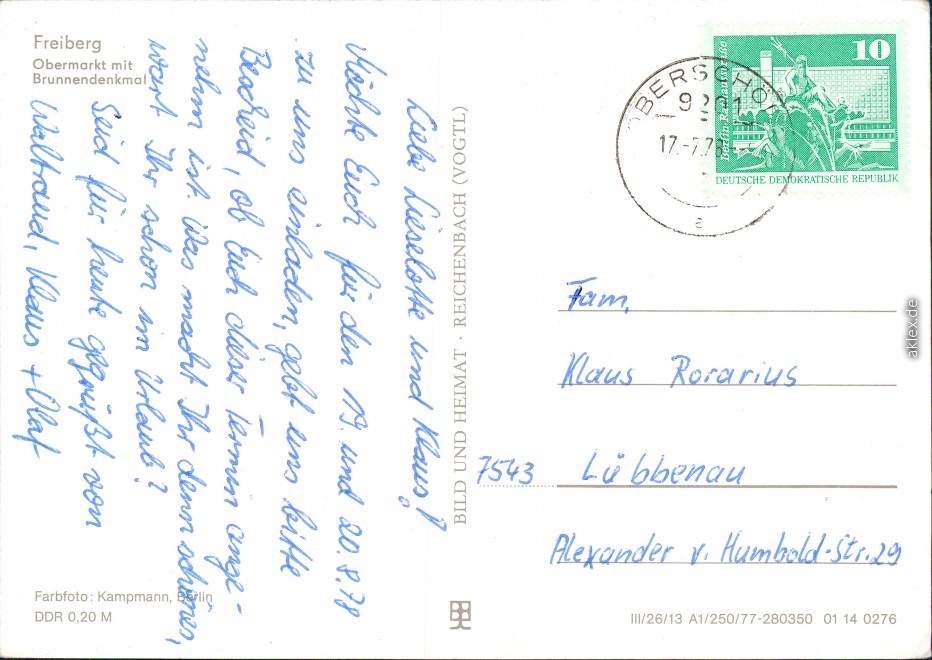 Freiberg
Obermarkt mit
Brunnendenkmal
Liebe Lieselotte und Klaus!
Möchte Euch für den 19. und 20. 8. 78
zu uns einladen, gebt uns bitte
Bescheid, ob Euch dieser Termin ange-
nehm ist. Was macht Ihr denn schönes,
wart Ihr schon im Urlaub?
Seid für heute gegrüßt von
Waltraud, Klaus + Olaf
Farbfoto: Kampmann, Berlin
DDR 0,20 M
BILD UND HEIMAT · REICHENBACH (VOGTL)
OBERSCHÖ
9201
17.-7.78
a
10
Berlin Rathausstraße
DEUTSCHE DEMOKRATISCHE REPUBLIK
Fam.
Klaus Rorarius
7543 Lübbenau
Alexander v. Humbold-Str. 29
III/26/13 A1/250/77-280350 01 14 0276
aklex.de